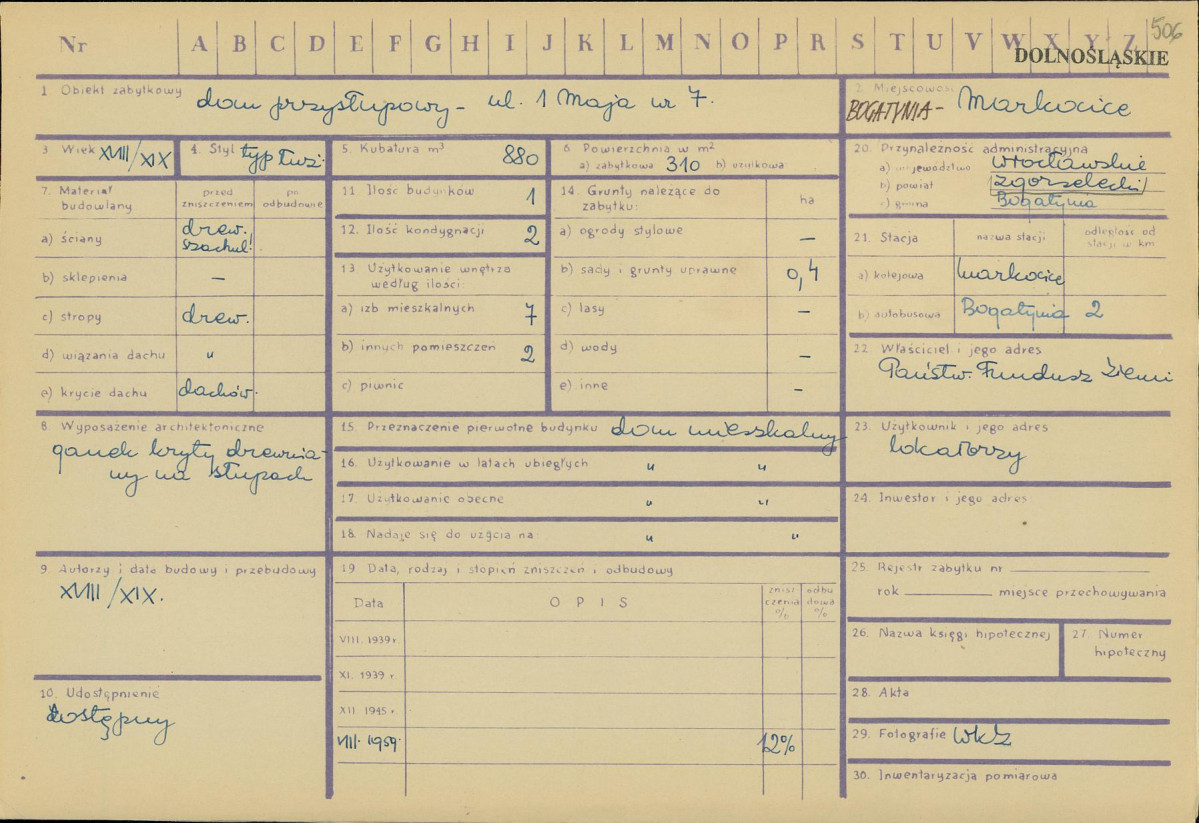 506
Nr A B C D E F G H I J K L M N O P R S T U V W X Y Z
DOLNOŚLĄSKIE
1. Obiekt zabytkowy dom przysłupowy - ul. 1 Maja nr 7.
2. Miejscowość BOGATYNIA - Markocice
3. Wiek XVIII/XIX
4. Styl typ łuż.
5. Kubatura m³ 880
6. Powierzchnia w m²
a) zabytkowa 310 b) użytkowa
7. Materiał budowlany
przed zniszczeniem
po odbudowie
a) ściany drew. szachul.
b) sklepienia —
c) stropy drew.
d) wiązania dachu "
e) krycie dachu dachów.
8. Wyposażenie architektoniczne
ganek kryty drewnia-
ny na słupach
9. Autorzy i data budowy i przebudowy
XVIII/XIX.
10. Udostępnienie
dostępny
11. Ilość budynków 1
12. Ilość kondygnacji 2
13. Użytkowanie wnętrza
według ilości:
a) izb mieszkalnych 7
b) innych pomieszczeń 2
c) piwnic
14. Grunty należące do
zabytku: ha
a) ogrody stylowe —
b) sady i grunty uprawne 0,4
c) lasy —
d) wody —
e) inne —
15. Przeznaczenie pierwotne budynku dom mieszkalny
16. Użytkowanie w latach ubiegłych " "
17. Użytkowanie obecne " "
18. Nadaje się do użycia na " "
19. Data, rodzaj i stopień zniszczeń i odbudowy
Data OPIS znisz czenia % odbu dowa %
VIII. 1939 r.
XI. 1939 r.
XII. 1945 r.
VIII. 1959. 12%
20. Przynależność administracyjna
a) województwo wrocławskie
b) powiat zgorzelecki
c) gmina Bogatynia
21. Stacja nazwa stacji odległość od stacji w km
a) kolejowa Markocice
b) autobusowa Bogatynia 2
22. Właściciel i jego adres
Państw. Fundusz Ziemi
23. Użytkownik i jego adres
lokatorzy
24. Inwestor i jego adres
25. Rejestr zabytku nr
rok miejsce przechowywania
26. Nazwa księgi hipotecznej
27. Numer
hipoteczny
28. Akta
29. Fotografie WKZ
30. Inwentaryzacja pomiarowa